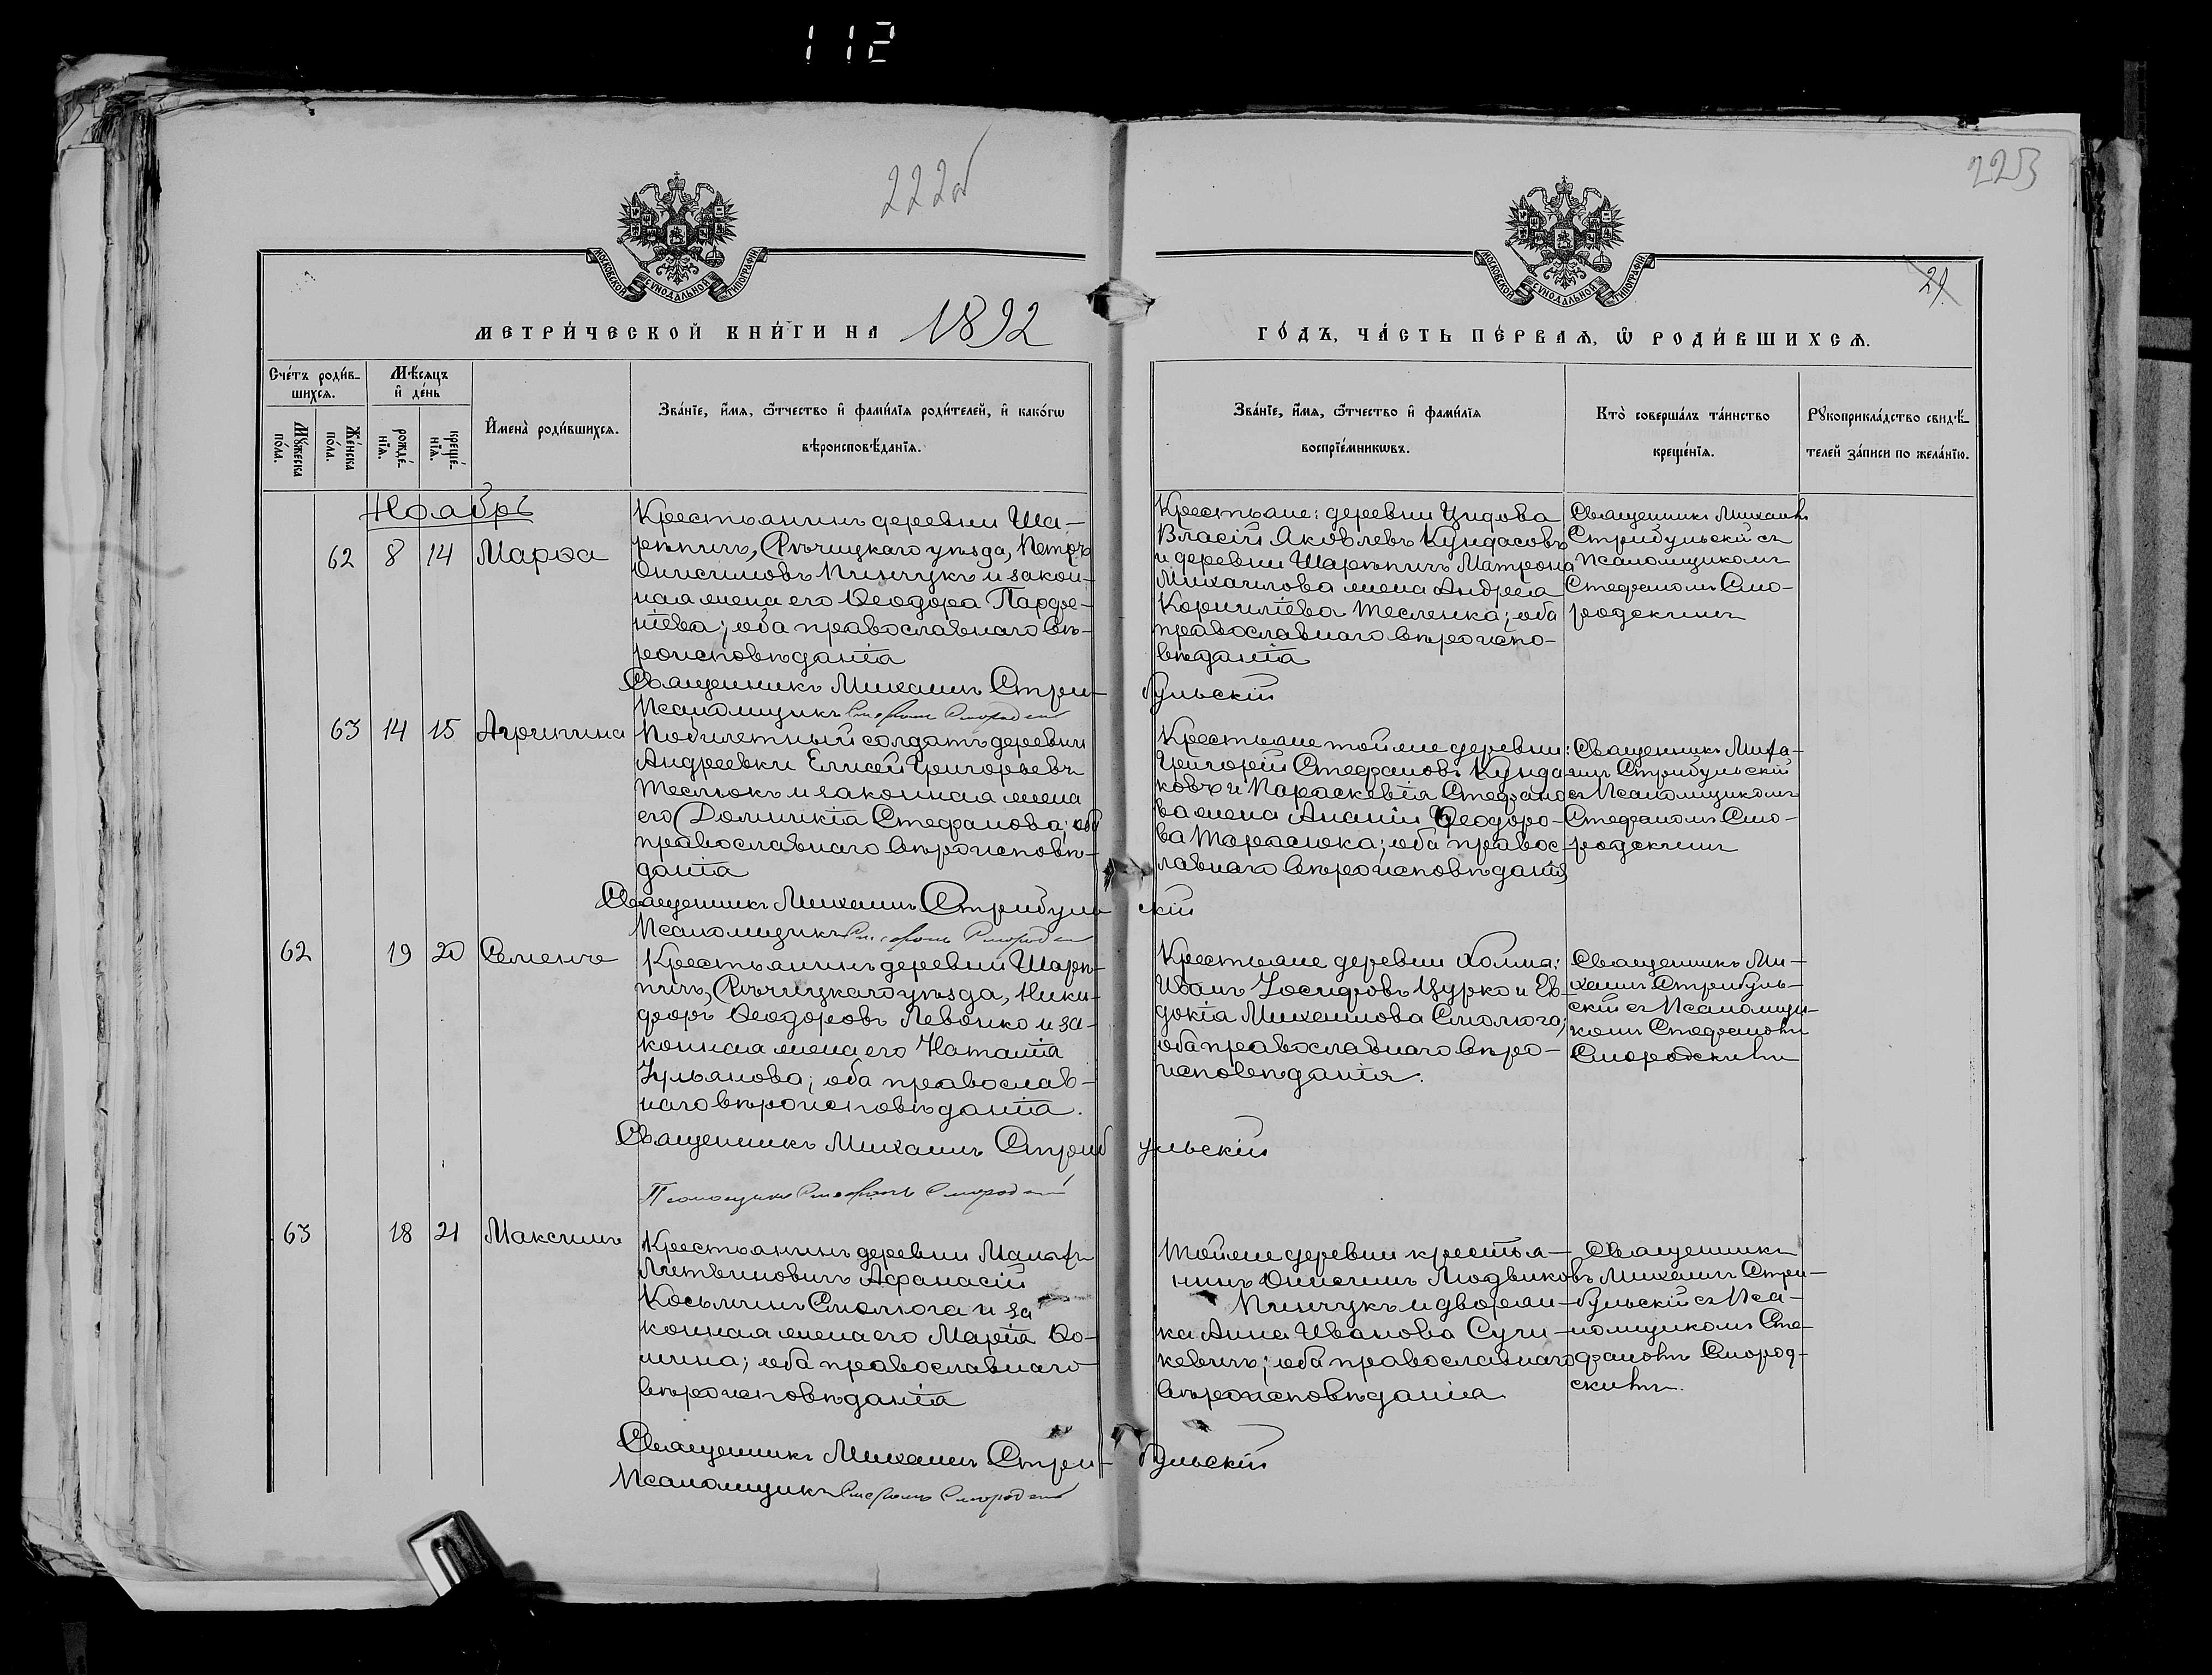 112
222об
223
21.
МОСКОВСКОЙ СѴНОДАЛЬНОЙ ТИПОГРАФІИ
МОСКОВСКОЙ СѴНОДАЛЬНОЙ ТИПОГРАФІИ
МЕТРИ́ЧЕСКОЙ КНИ́ГИ НА 1892
ГО́ДЪ, ЧА́СТЬ ПЕ́РВАѦ, Ѽ РОДИ́ВШИХСѦ.
Сче́тъ роди́в-
шихсѧ.
Мꙋ́жеска
по́ла.
Же́нска
по́ла.
Мѣ́сяцъ
и҆ де́нь
рожде́-
нїѧ.
креще́-
нїѧ.
И҆мена̀ роди́вшихсѧ.
Зва́нїе, и҆́мѧ, ѻ҆́тчество и҆ фами́лїѧ роди́телей, и҆ како́гѡ
вѣроисповѣ́данїѧ.
Зва́нїе, и҆́мѧ, ѻ҆́тчество и҆ фами́лїѧ
воспрїе́мникѡвъ.
Кто̀ соверша́лъ та́инство
креще́нїѧ.
Рꙋкоприкла́дство свидѣ́-
телей за́писи по жела́нїю.
Ноябрь
62 8 14 Марѳа
Крестьянинъ деревни Ша-
рѣпичъ, Рѣчицкаго уѣзда, Петръ
Онисимовъ Пинчукъ и закон-
ная жена его Ѳеодора Парфе-
нтіева; оба православнаго вѣ-
роисповѣданія
Крестьяне: деревни Уидова
Власій Яковлевъ Кундасовъ
и деревни Шарѣпичъ Матрона
Михаилова жена Андрея
Корнилїева Тесленка; оба
православнаго вѣроиспо-
вѣданія
Священникъ Михаилъ
Стрибульскій съ
псаломщикомъ
Стефаномъ Смо-
родскимъ
Священникъ Михаилъ Стри-бульскій
Псаломщикъ Стефанъ Смородскій
63 14 15 Агрипина
Побилетный солдатъ деревни
Андреевки Елисей Григорьевъ
Теслюкъ и законная жена
его Домникія Стефанова; оба
православнаго вѣроисповѣ-
данія
Крестьяне той же деревни:
Григорій Стефановъ Кунда
ковъ и Параскевія Стефано
ва жена Ананіи Ѳеодоро-
ва Тарасюка; оба правос-
лавнаго вѣроисповѣданія
Священникъ Миха-
илъ Стрибульскій
съ Псаломщикомъ
Стефаномъ Смо-
родскимъ
Священникъ Михаилъ Стрибуль скій
Псаломщикъ Стефанъ Смородскій
62 19 20 Сѵменъ
Крестьянинъ деревни Шарѣ-
пичъ, Рѣчицкаго уѣзда, Ники-
форъ Ѳеодоровъ Левонко и за-
конная жена его Наталія
Ульянова; оба православ-
наго вѣроисповѣданія.
Крестьяне деревни Холма:
Иванъ Іосифовъ Цурко и Ев-
докія Михаилова Смолюга;
оба православнаго вѣро-
исповѣданія.
Священникъ Ми-
хаилъ Стрибуль-
скій съ Псаломщи-
комъ Стефаномъ
Смородскимъ
Священникъ Михаилъ Стриб ульскій
Псаломщикъ Стефанъ Смородскій
63 18 21 Максимъ
Крестьянинъ деревни Малыхъ
Литвиновичъ Аѳанасій
Косьминъ Смолюга и за
конная жена его Марія Ѳо-
мина; оба православнаго
вѣроисповѣданія
Той же деревни крестья-
нинъ Онисимъ Людвиковъ
Пинчукъ и дворян-
ка Анна Иванова Сули-
кевичъ; оба православнаго
вѣроисповѣданія
Священникъ
Михаилъ Стри-
бульскій съ Пса-
ломщикомъ Сте-
фаномъ Смород-
скимъ.
Священникъ Михаилъ Стри-бульскій
Псаломщикъ Стефанъ Смородскій